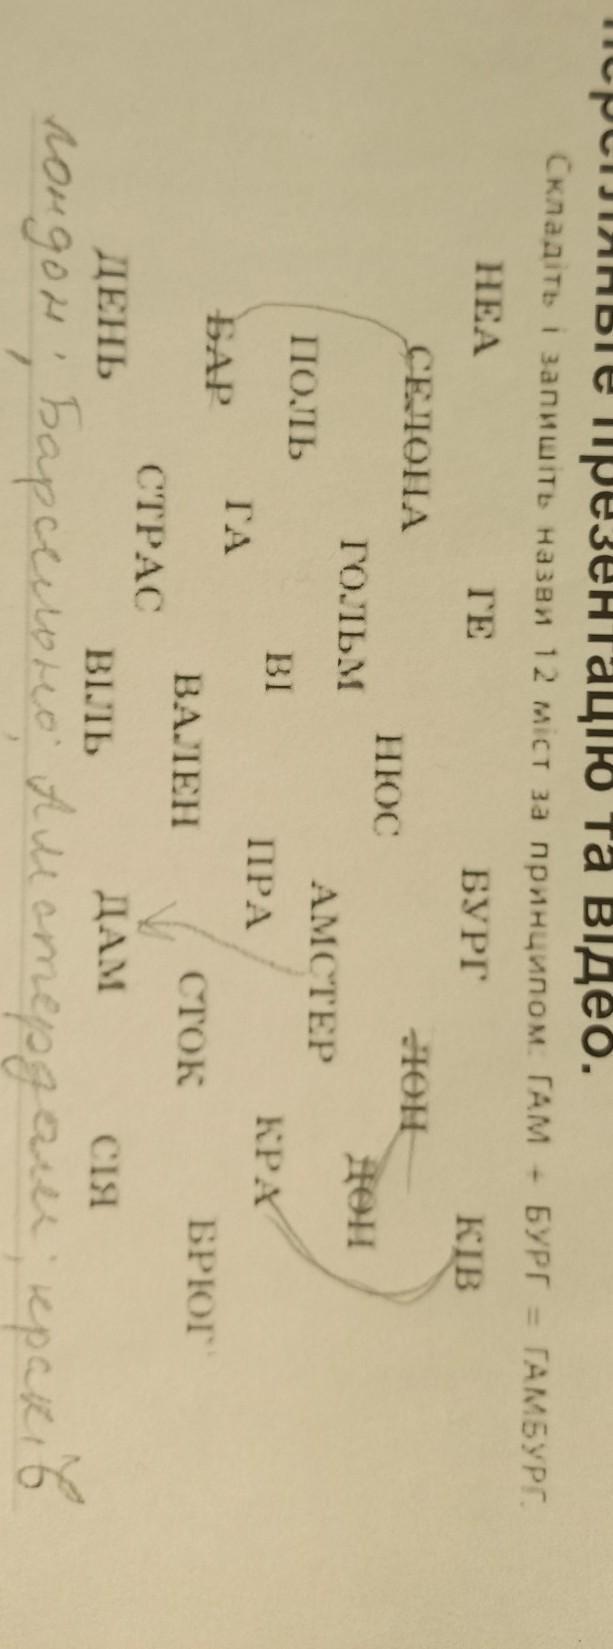 перегляньте презентацію та відео.
Складіть і запишіть назви 12 міст за принципом: ГАМ + БУРГ = ГАМБУРГ.
НЕА ГЕ БУРГ КІВ
СЕЛОНА НЮС ЛОН
ПОЛЬ ГОЛЬМ АМСТЕР ДОН
БАР ГА ВІ ПРА КРА
СТРАС ВАЛЕН СТОК БРЮГ
ДЕНЬ ВІЛЬ ДАМ СІЯ
лондон, Барселона, Амстердам, краків